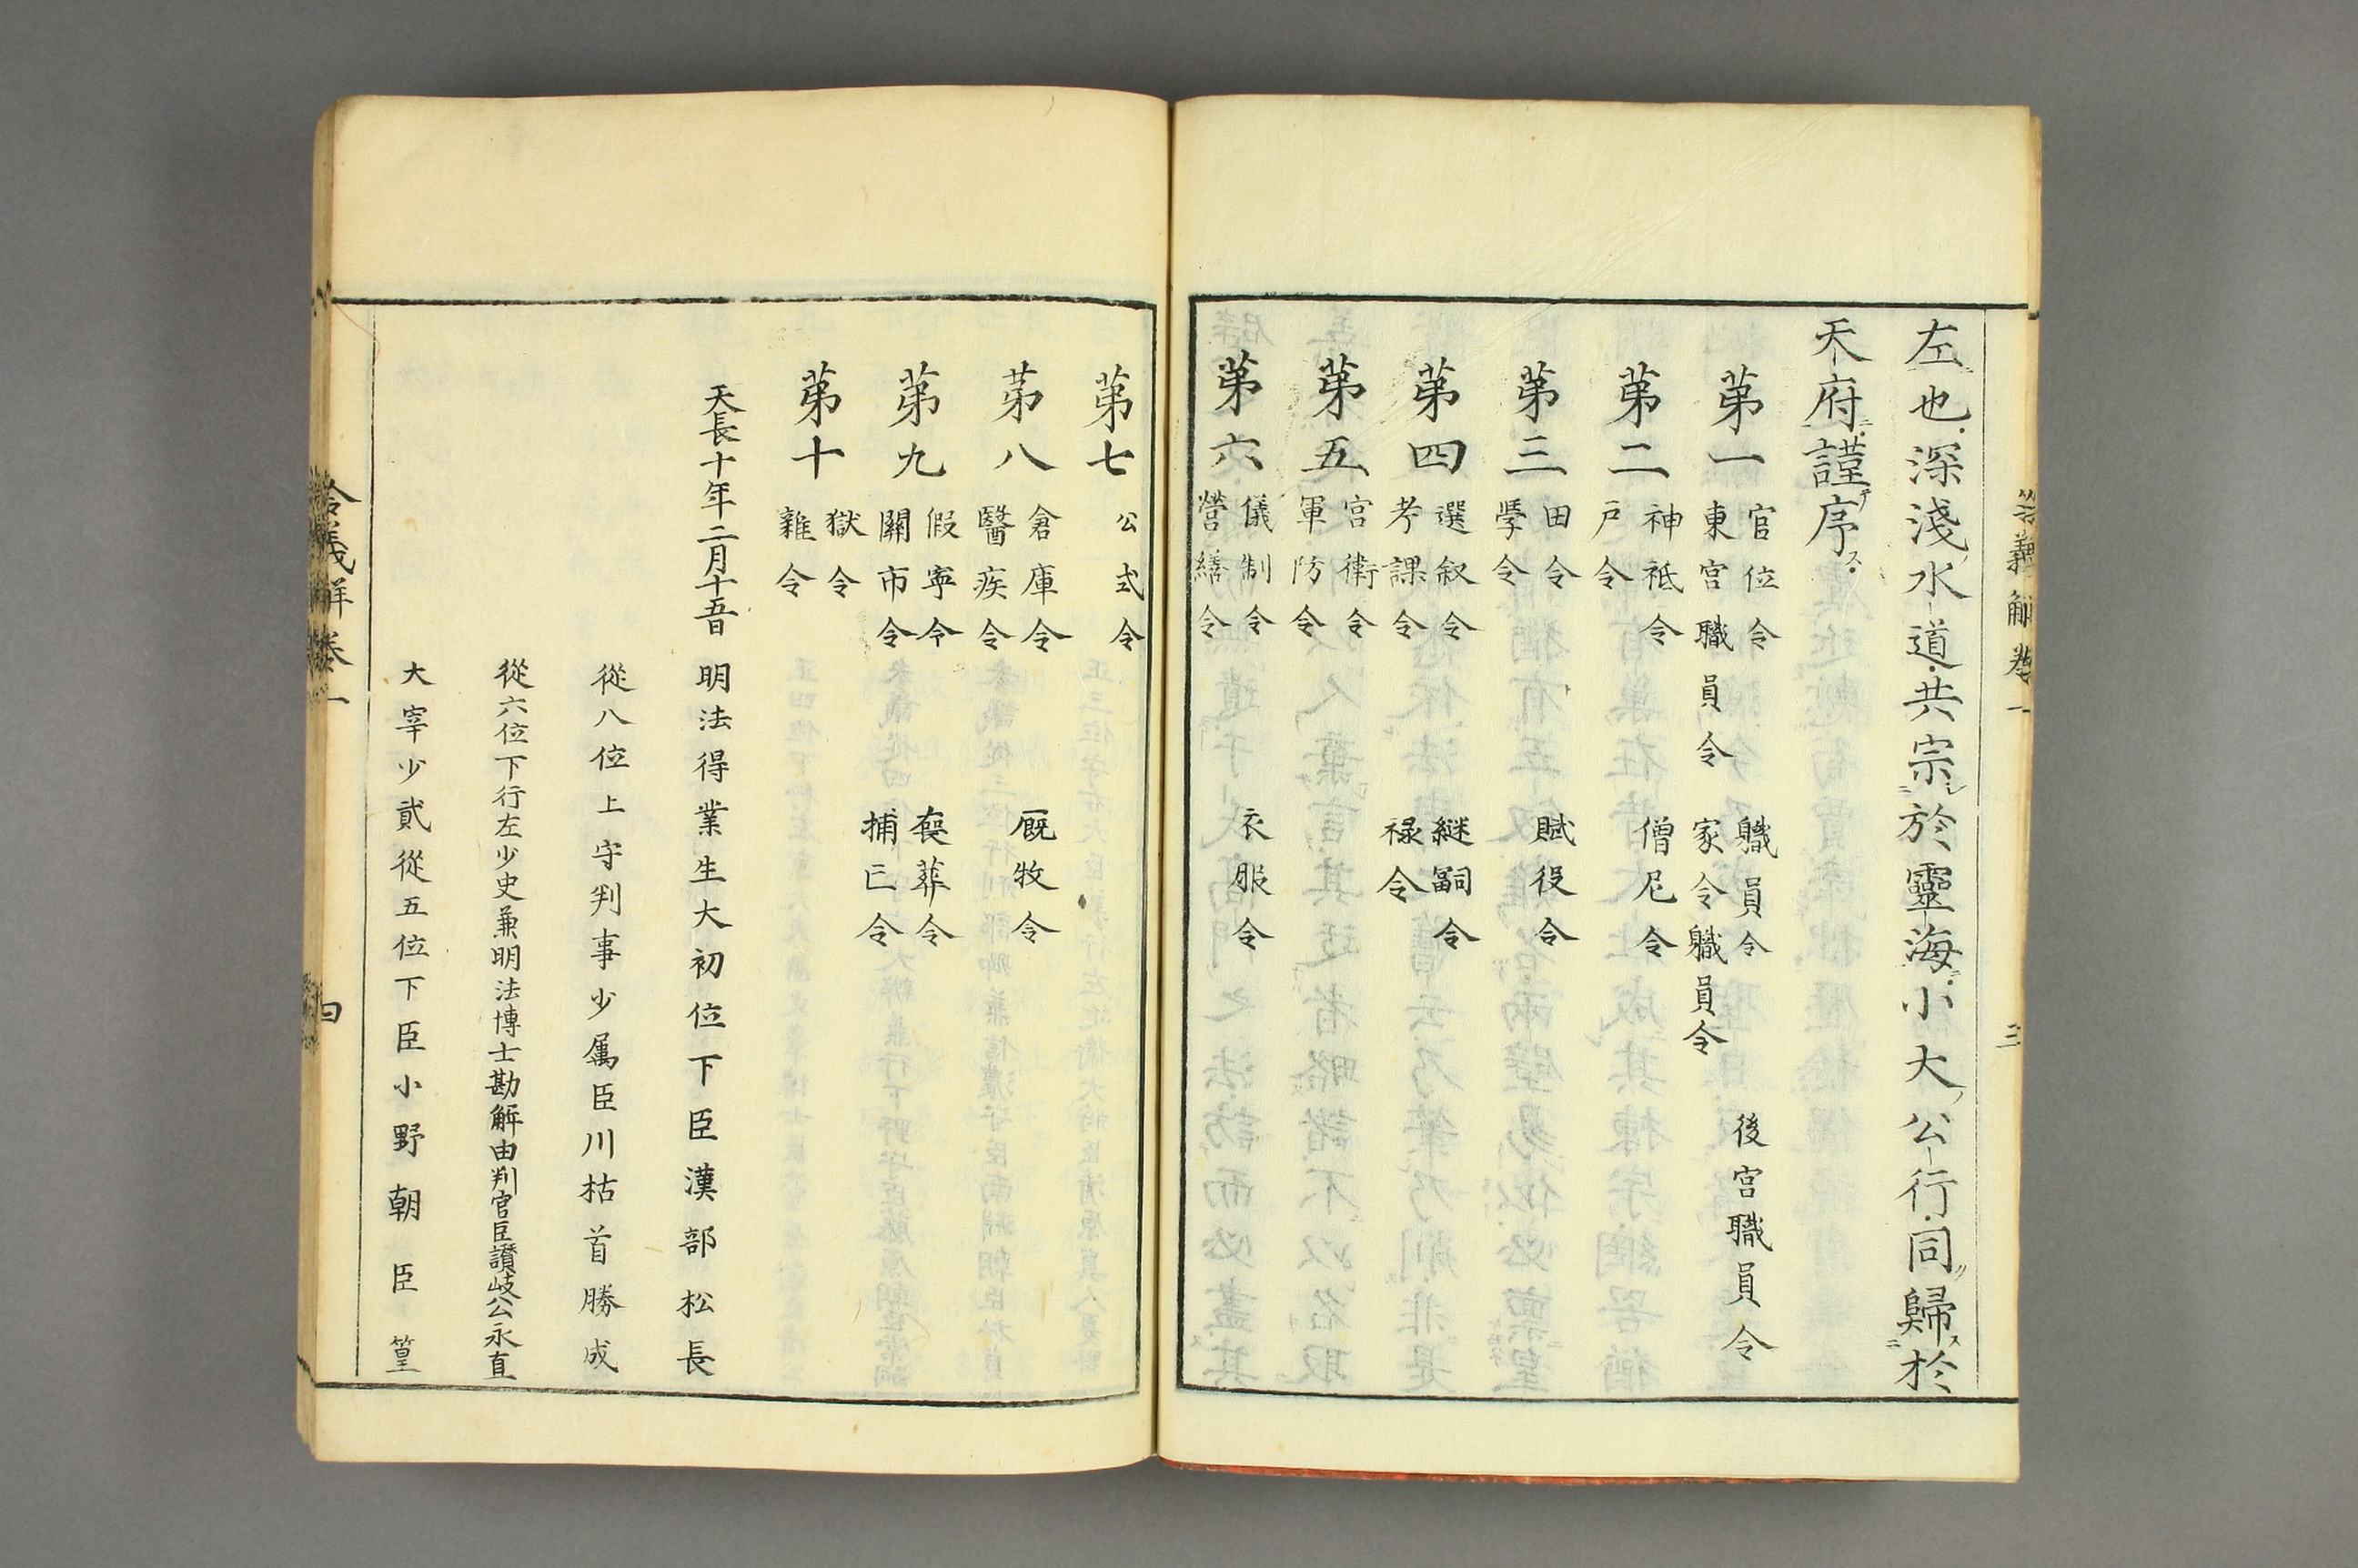 令義解卷一
三
左也深淺水道共宗於靈海小大公行同歸於
天府謹序
第一
官位令 職員令 後宮職員令
東宮職員令 家令職員令
第二
神祇令 僧尼令
戶令
第三
田令 賦役令
學令
第四
選叙令 継嗣令
考課令 禄令
第五
宮衛令
軍防令
第六
儀制令 衣服令
營繕令
第七
公式令
第八
倉庫令 厩牧令
醫疾令
第九
假寧令 喪葬令
關市令 捕亡令
第十
獄令
雜令
天長十年二月十五日
明法得業生大初位下臣漢部松長
從八位上守判事少属臣川枯首勝成
從六位下行左少史兼明法博士勘解由判官臣讃岐公永直
大宰少貳從五位下臣小野朝臣篁
令義解卷一
四